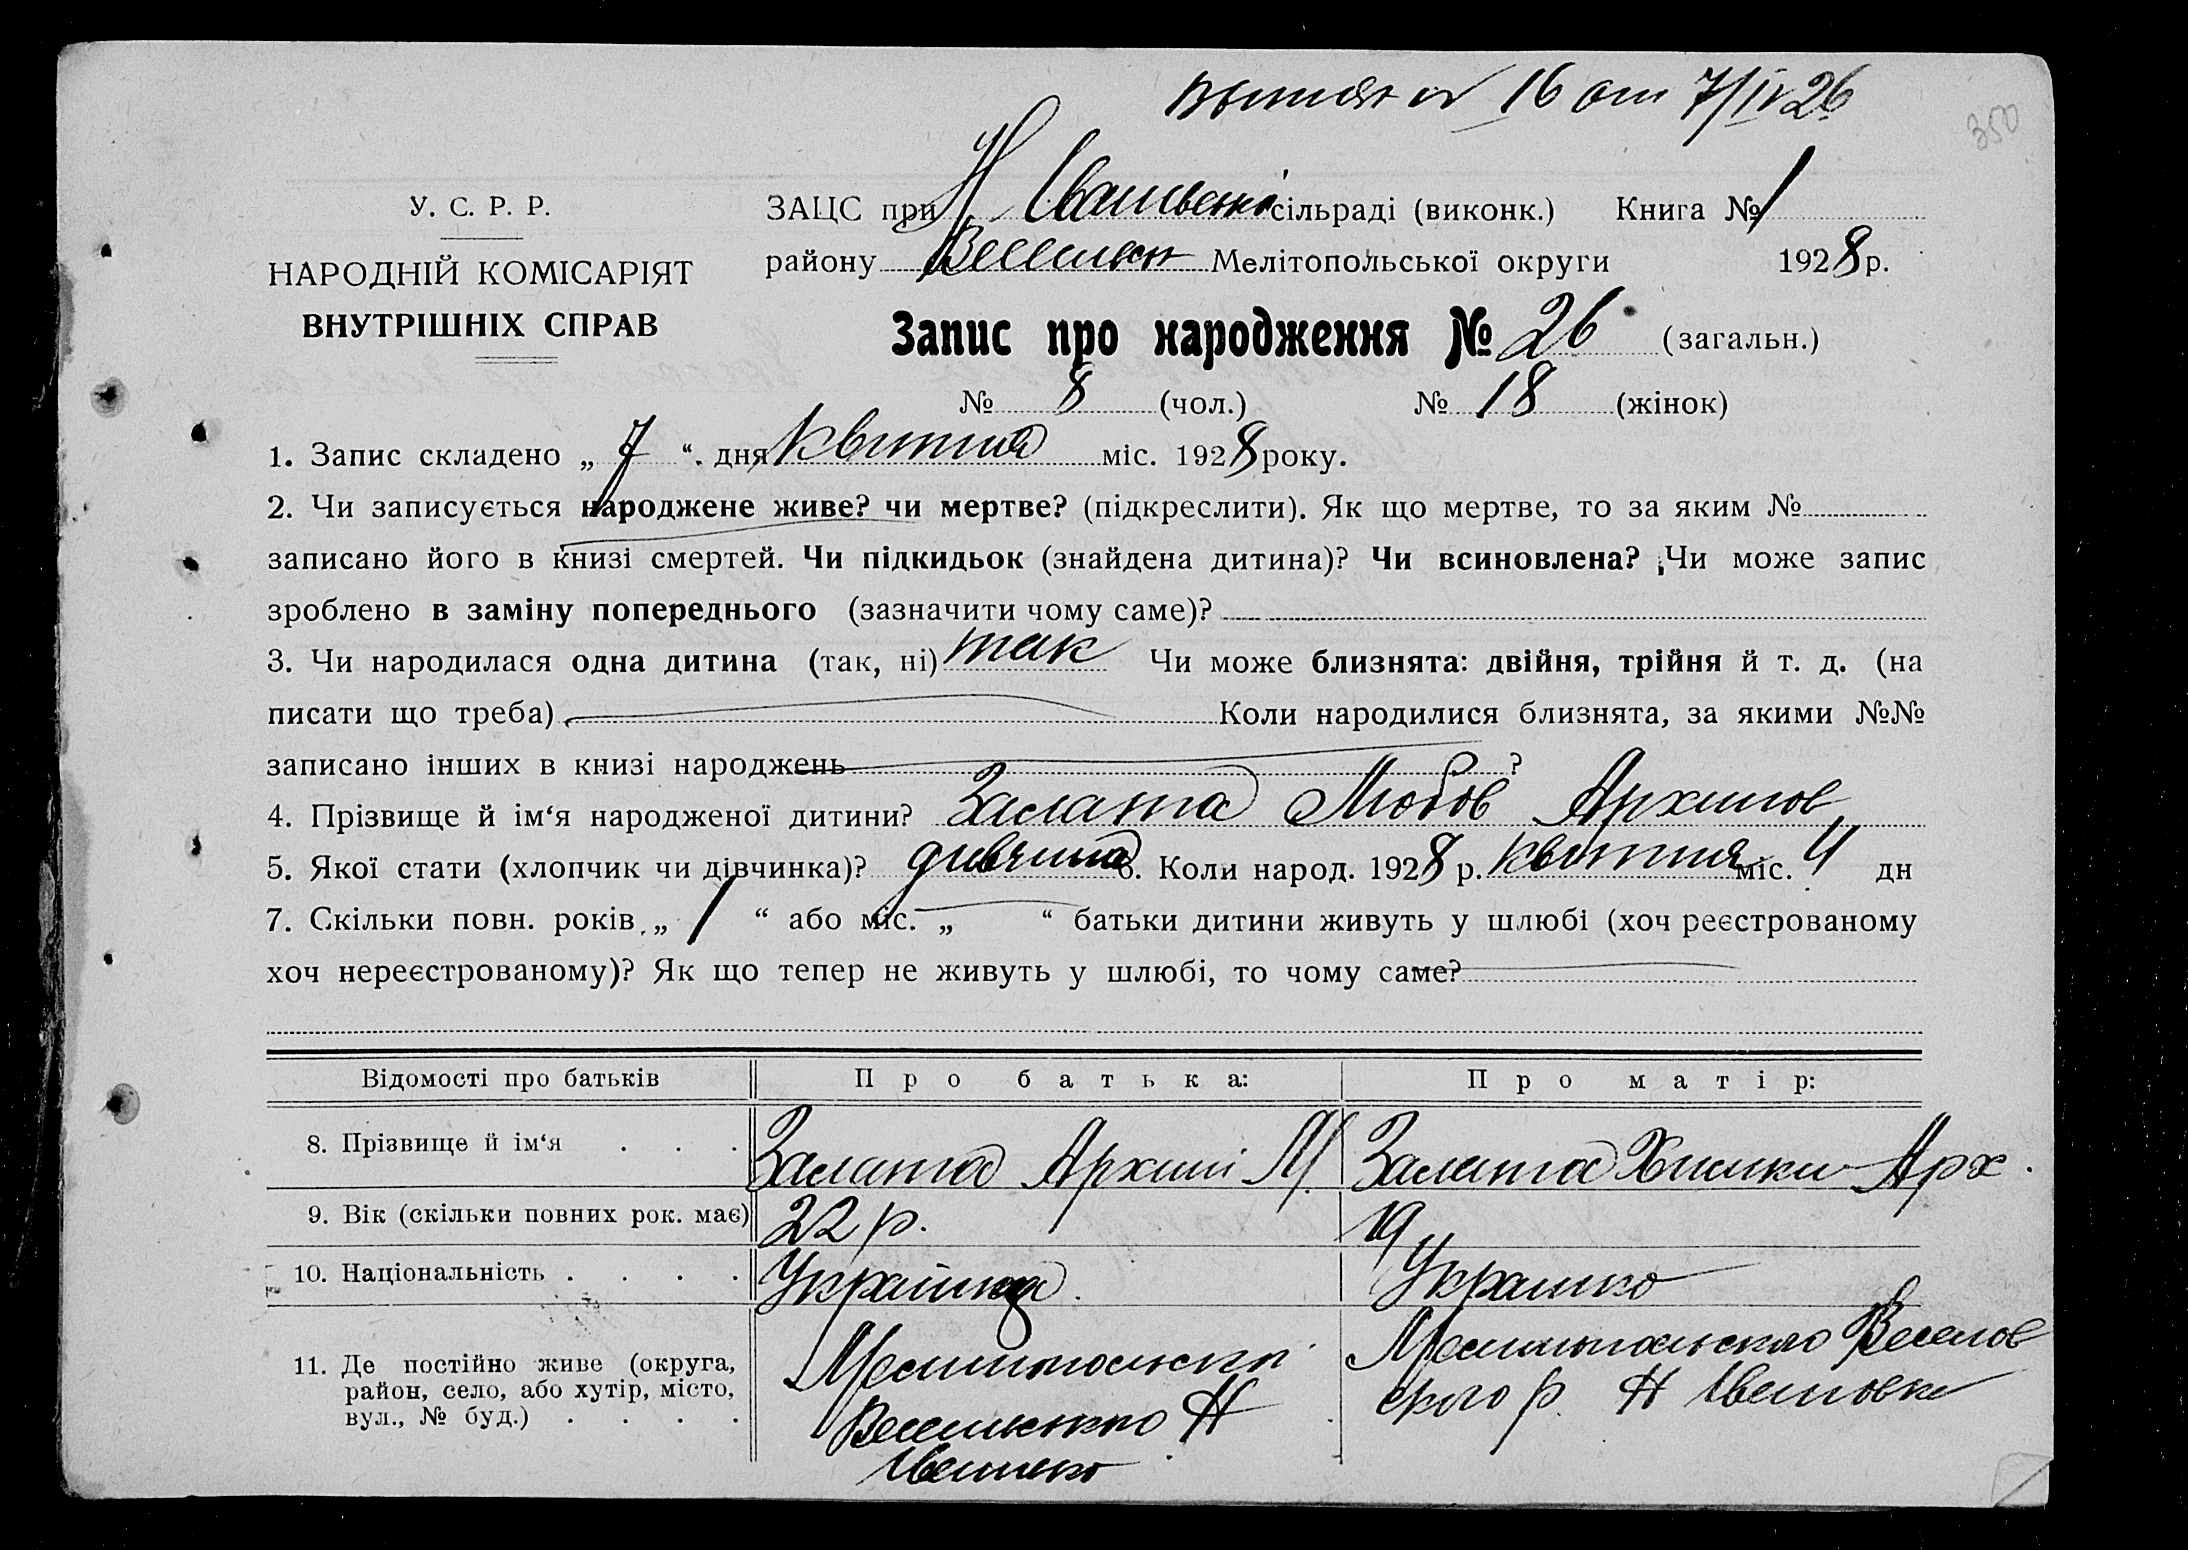 16 от 7/IV 26
350
У. С. Р. Р.
НАРОДНІЙ КОМІСАРІЯТ
ВНУТРІШНІХ СПРАВ
ЗАЦС при Н сільраді (виконк.) Книга № 1
району Мелітопольської округи 1928 р.
Запис про народження № 26 (загальн.)
№ 8 (чол.) № 18 (жінок)
1. Запис складено „ 7 “. дня квитня міс. 1928 року.
2. Чи записується народжене живе? чи мертве? (підкреслити). Як що мертве, то за яким №
записано його в книзі смертей. Чи підкидьок (знайдена дитина)? Чи всиновлена? Чи може запис
зроблено в заміну попереднього (зазначити чому саме)?
3. Чи народилася одна дитина (так, ні) так Чи може близнята: двійня, трійня й т. д. (на
писати що треба) Коли народилися близнята, за якими №№
записано інших в книзі народжень ?
4. Прізвище й ім‘я народженої дитини? Залата Любов Архипов
5. Якої стати (хлопчик чи дівчинка)? дивчина 6. Коли народ. 1928 р. квитня міс. 4 дн
7. Скільки повн. років „ 1 “ або міс. „ “ батьки дитини живуть у шлюбі (хоч реєстрованому
хоч нереєстрованому)? Як що тепер не живуть у шлюбі, то чому саме?
Відомості про батьків Про батька: Про матір:
8. Прізвище й ім‘я . . . Залата Архип М. Залата Арх.
9. Вік (скільки повних рок. має) 22 р. 19
10. Національність . . . .
11. Де постійно живе (округа,
район, село, або хутір, місто,
вул., № буд.) . . . .
Н
р. Н